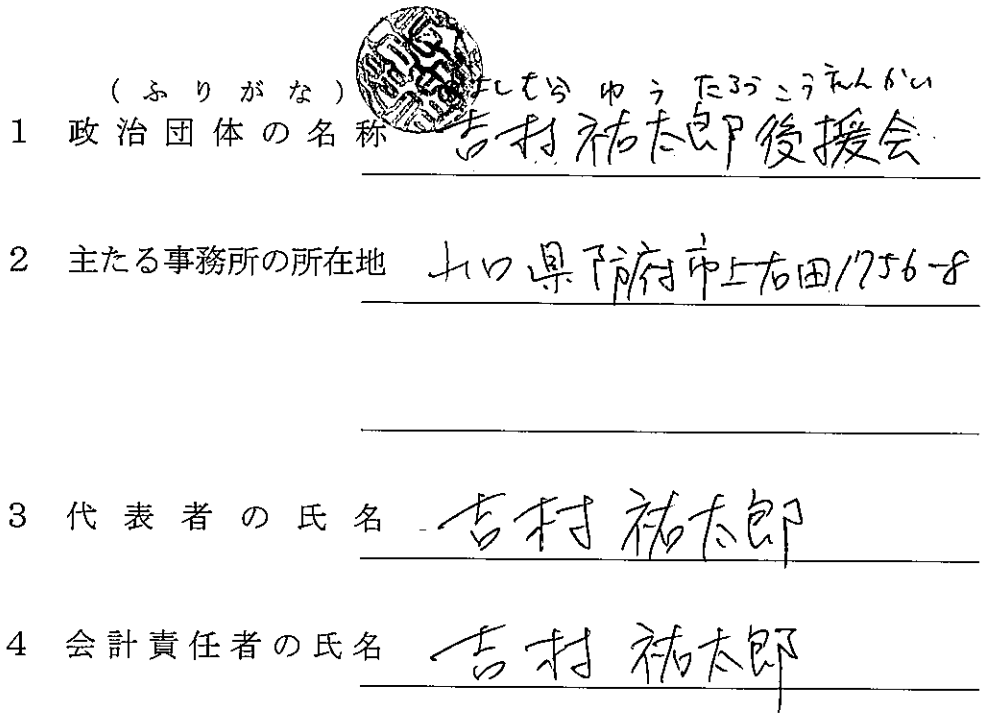 (ふりがな) よしむら ゆう たろう こうえんかい
1 政治団体の名称 吉村祐太郎後援会
2 主たる事務所の所在地 山口県防府市上右田1756-8
3 代表者の氏名 吉村 祐太郎
4 会計責任者の氏名 吉村 祐太郎